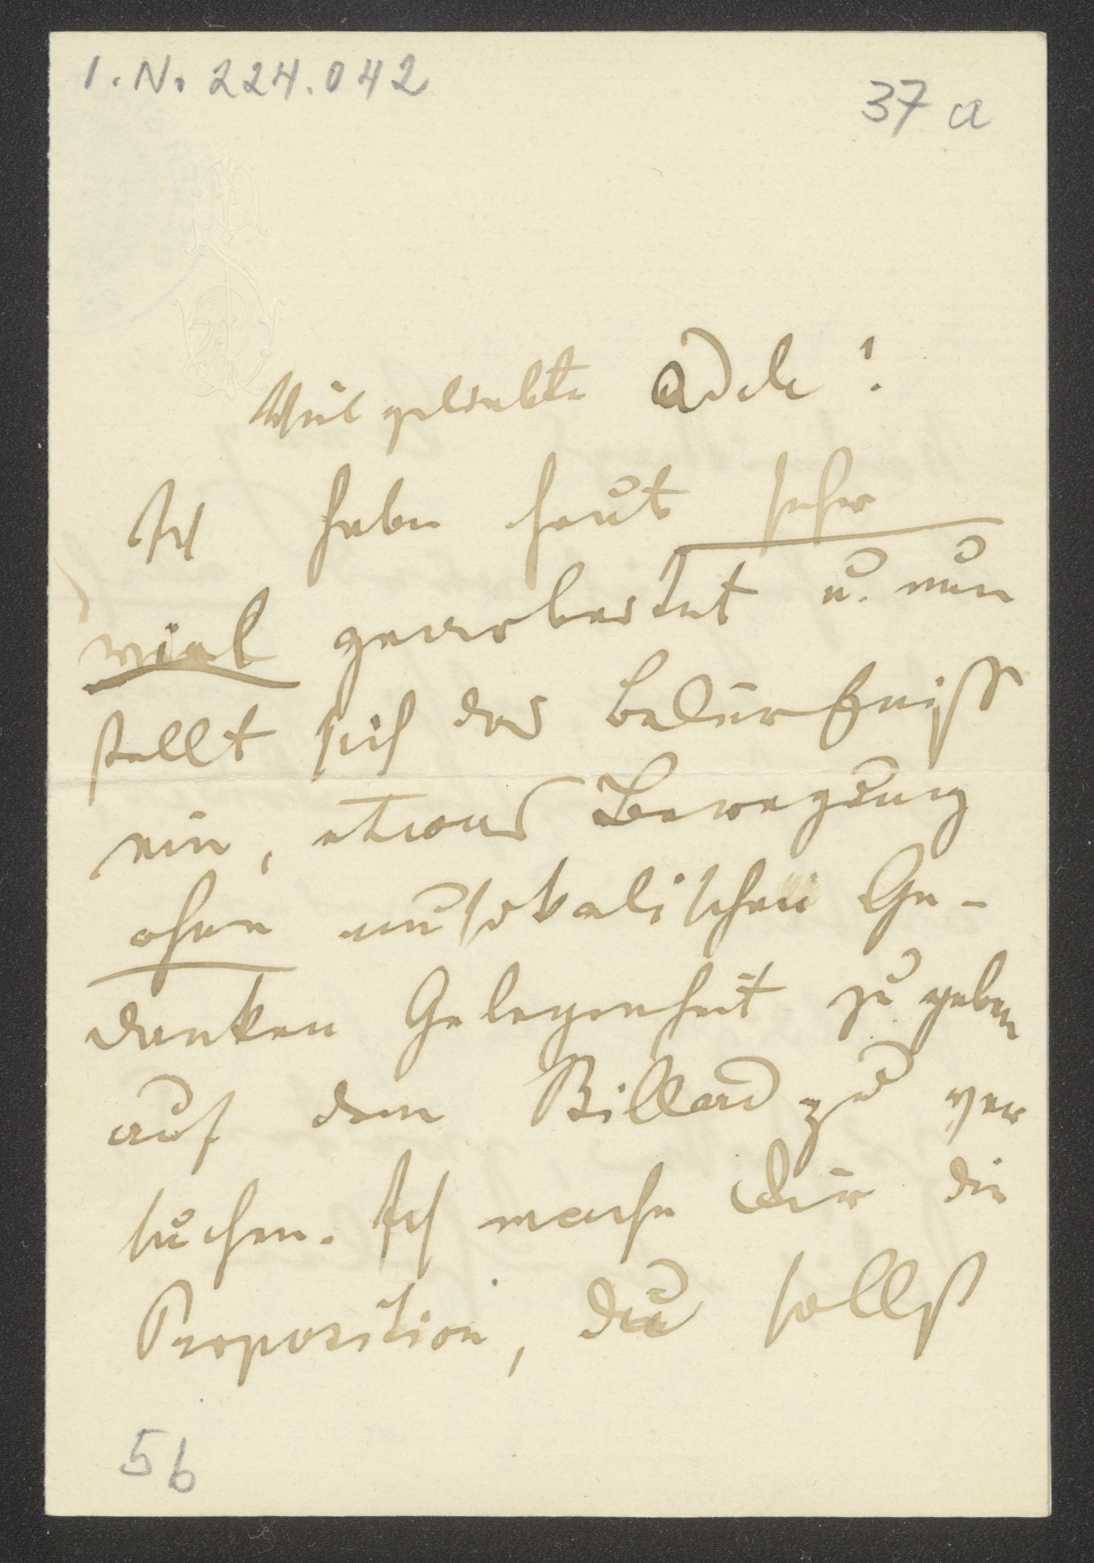 I. N. 224.042
37 a
Viel geliebte Adele!
Ich habe heute sehr
viel gearbeitet u. nun
stellt sich das Bedürfniss
ein, etwas Bewegung
ohne musikalischen Ge-
danken Gelegenheit zu geben
auf dem Billard zu ver
suchen. Ich mache Dir die
Proposition, Du sollst
56